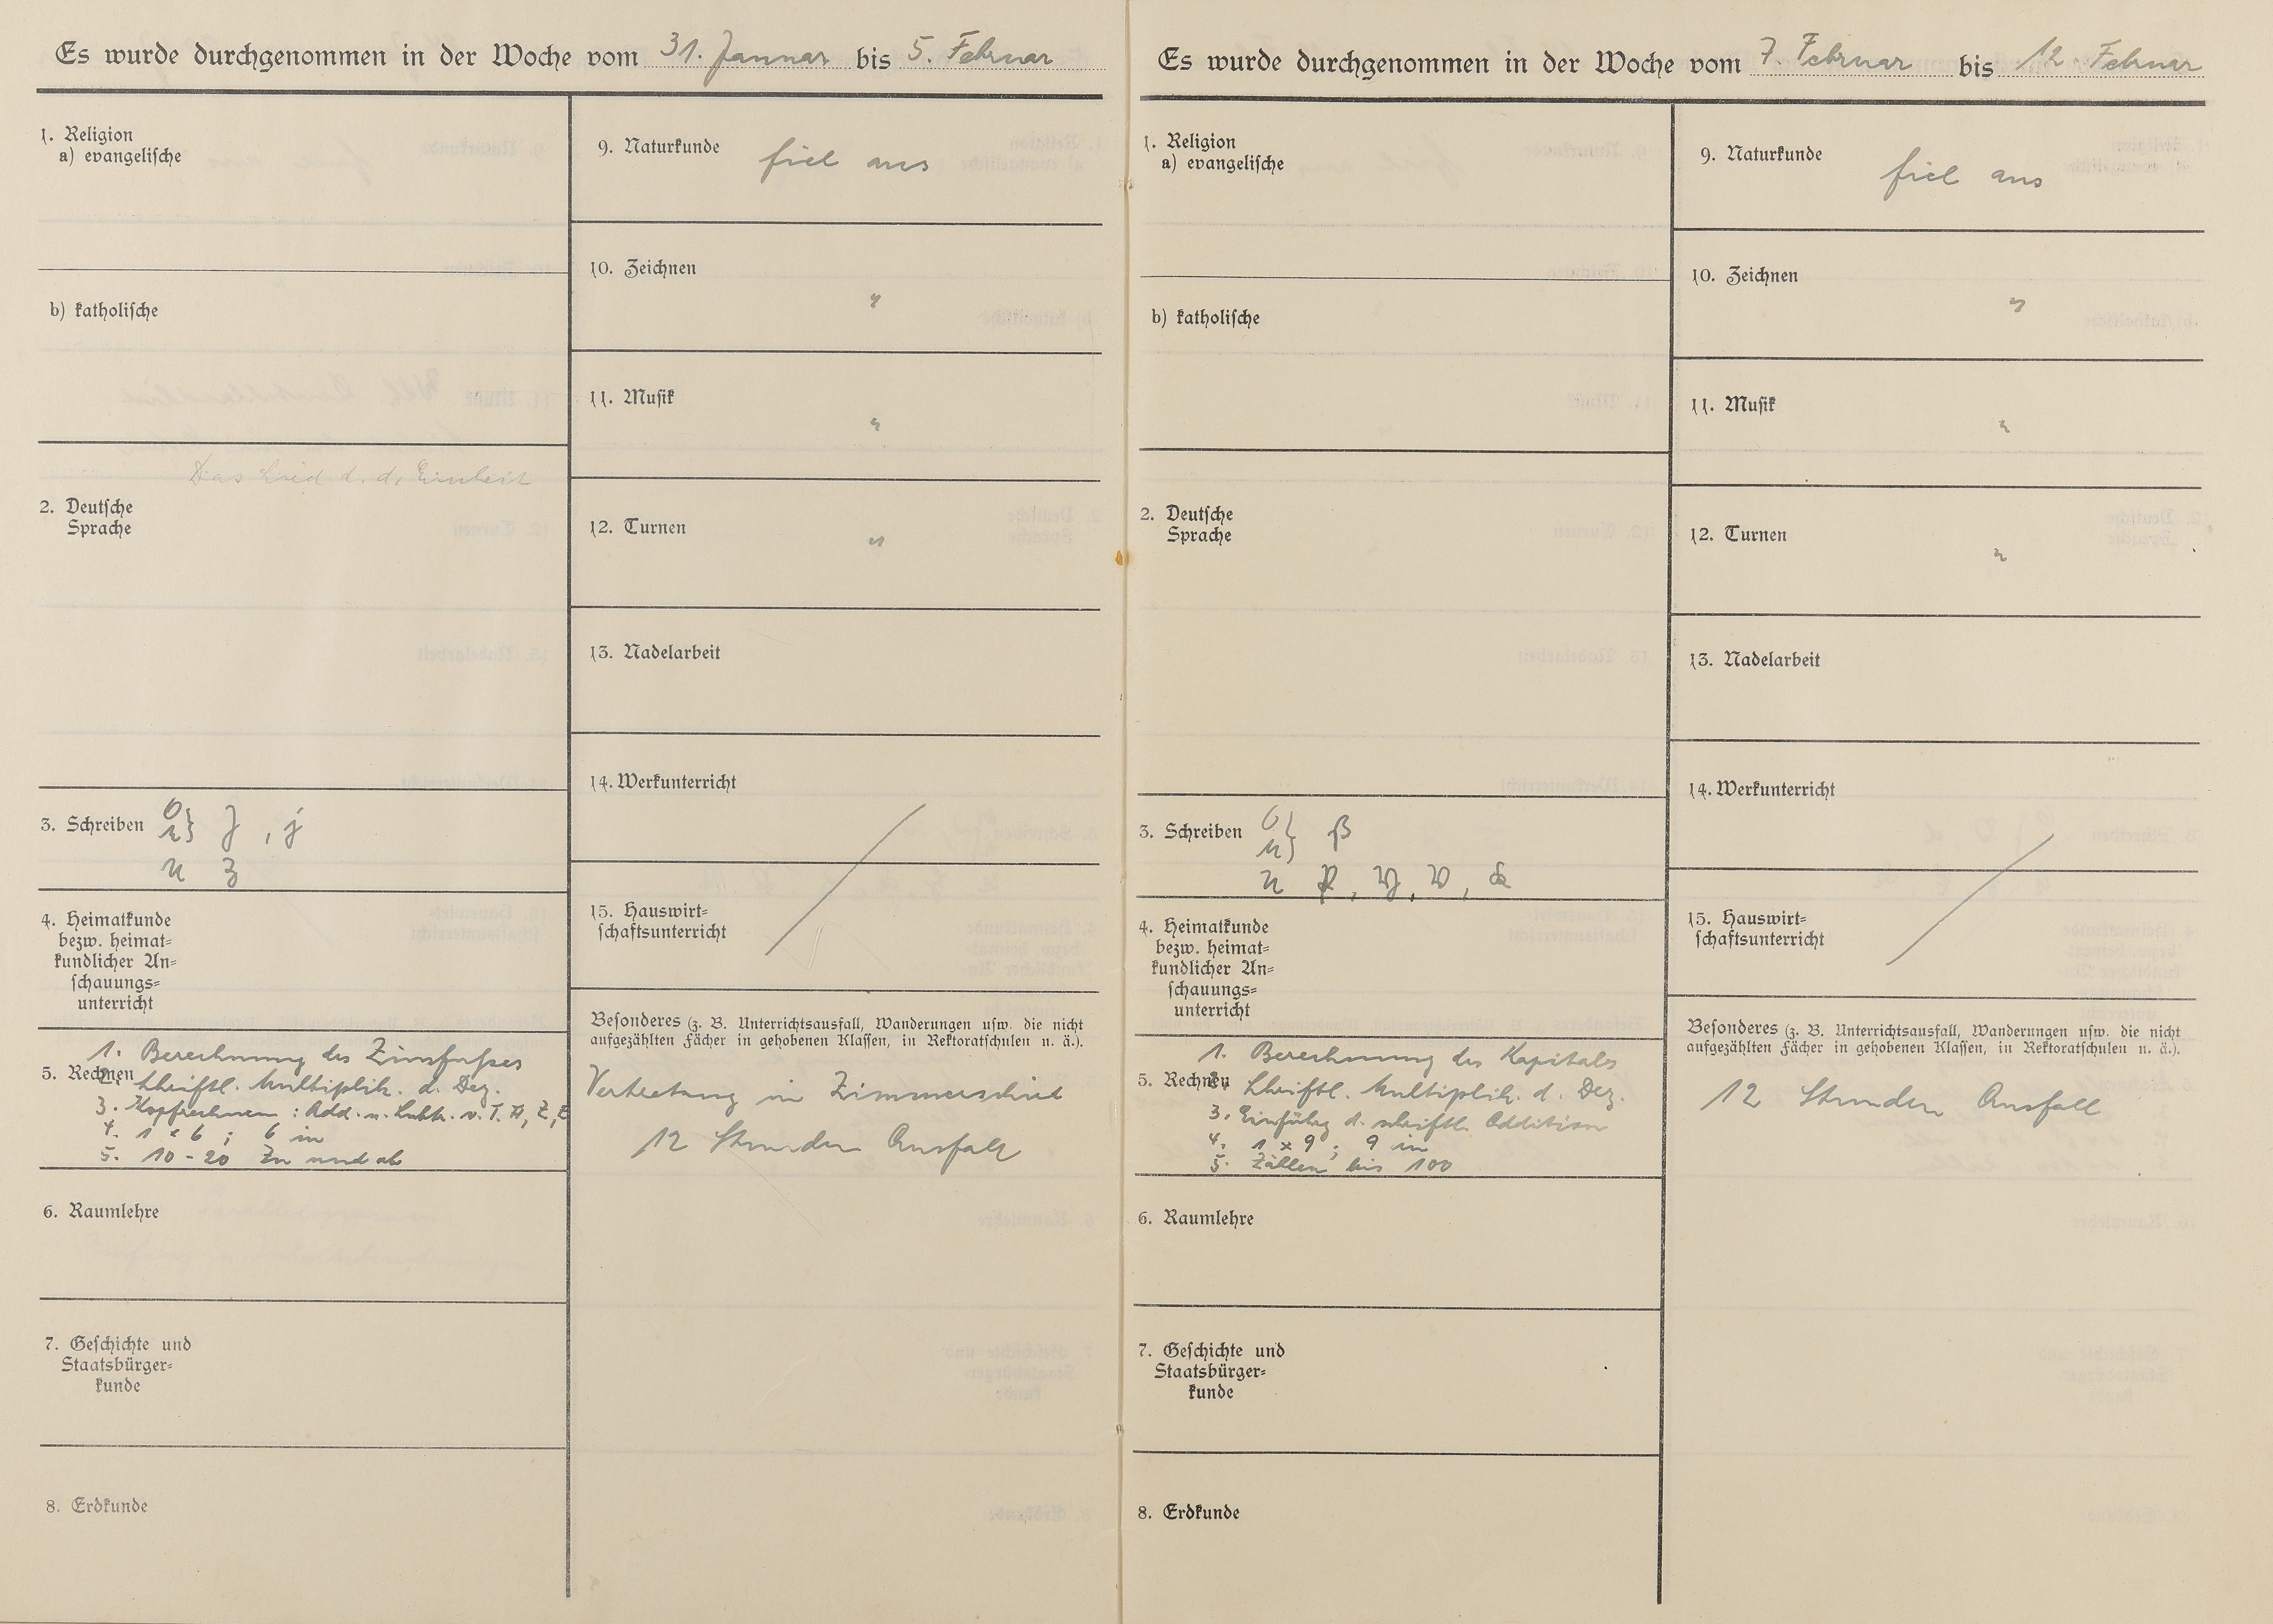 Es wurde durchgenommen in der Woche vom 31. Januar bis 5. Februar
1. Religion
a) evangelische
b) katholische
Das Lied d. d. Einheit
2. Deutsche
Sprache
3. Schreiben O} J, j
u}
u z
4. Heimatkunde
bezw. heimat=
kundlicher An=
schauungs=
unterricht
1. Berechnung des Zinsfußes
5. Rechnen 2. Schriftl. Multiplik. d. Dez.
3. Kopfrechnen: Add. u. Subtr. v. T. H, Z, E
4. 1 x 6 ; 6 in
5. 10 - 20 Zu und ab
6. Raumlehre
7. Geschichte und
Staatsbürger=
kunde
8. Erdkunde
9. Naturkunde fiel aus
10. Zeichnen "
11. Musik "
12. Turnen "
13. Nadelarbeit
14. Werkunterricht
15. Hauswirt=
schaftsunterricht
Besonderes (z. B. Unterrichtsausfall, Wanderungen usw. die nicht
aufgezählten Fächer in gehobenen Klassen, in Rektoratschulen u. ä.).
Vertretung in Zimmerschied
12 Stunden Ausfall
Es wurde durchgenommen in der Woche vom 7. Februar bis 12 Februar
1. Religion
a) evangelische
b) katholische
2. Deutsche
Sprache
3. Schreiben O} ß
u}
u
4. Heimatkunde
bezw. heimat=
kundlicher An=
schauungs=
unterricht
1. Berechnung des Kapitals
5. Rechnen 2. Schriftl. Multiplik. d. Dez.
3. Einführg d. schriftl. Addition
4. 1 x 9 ; 9 in
5. Zählen bis 100
6. Raumlehre
7. Geschichte und
Staatsbürger=
kunde
8. Erdkunde
9. Naturkunde fiel aus
10. Zeichnen "
11. Musik "
12. Turnen "
13. Nadelarbeit
14. Werkunterricht
15. Hauswirt=
schaftsunterricht
Besonderes (z. B. Unterrichtsausfall, Wanderungen usw. die nicht
aufgezählten Fächer in gehobenen Klassen, in Rektoratschulen u. ä.).
12 Stunden Ausfall